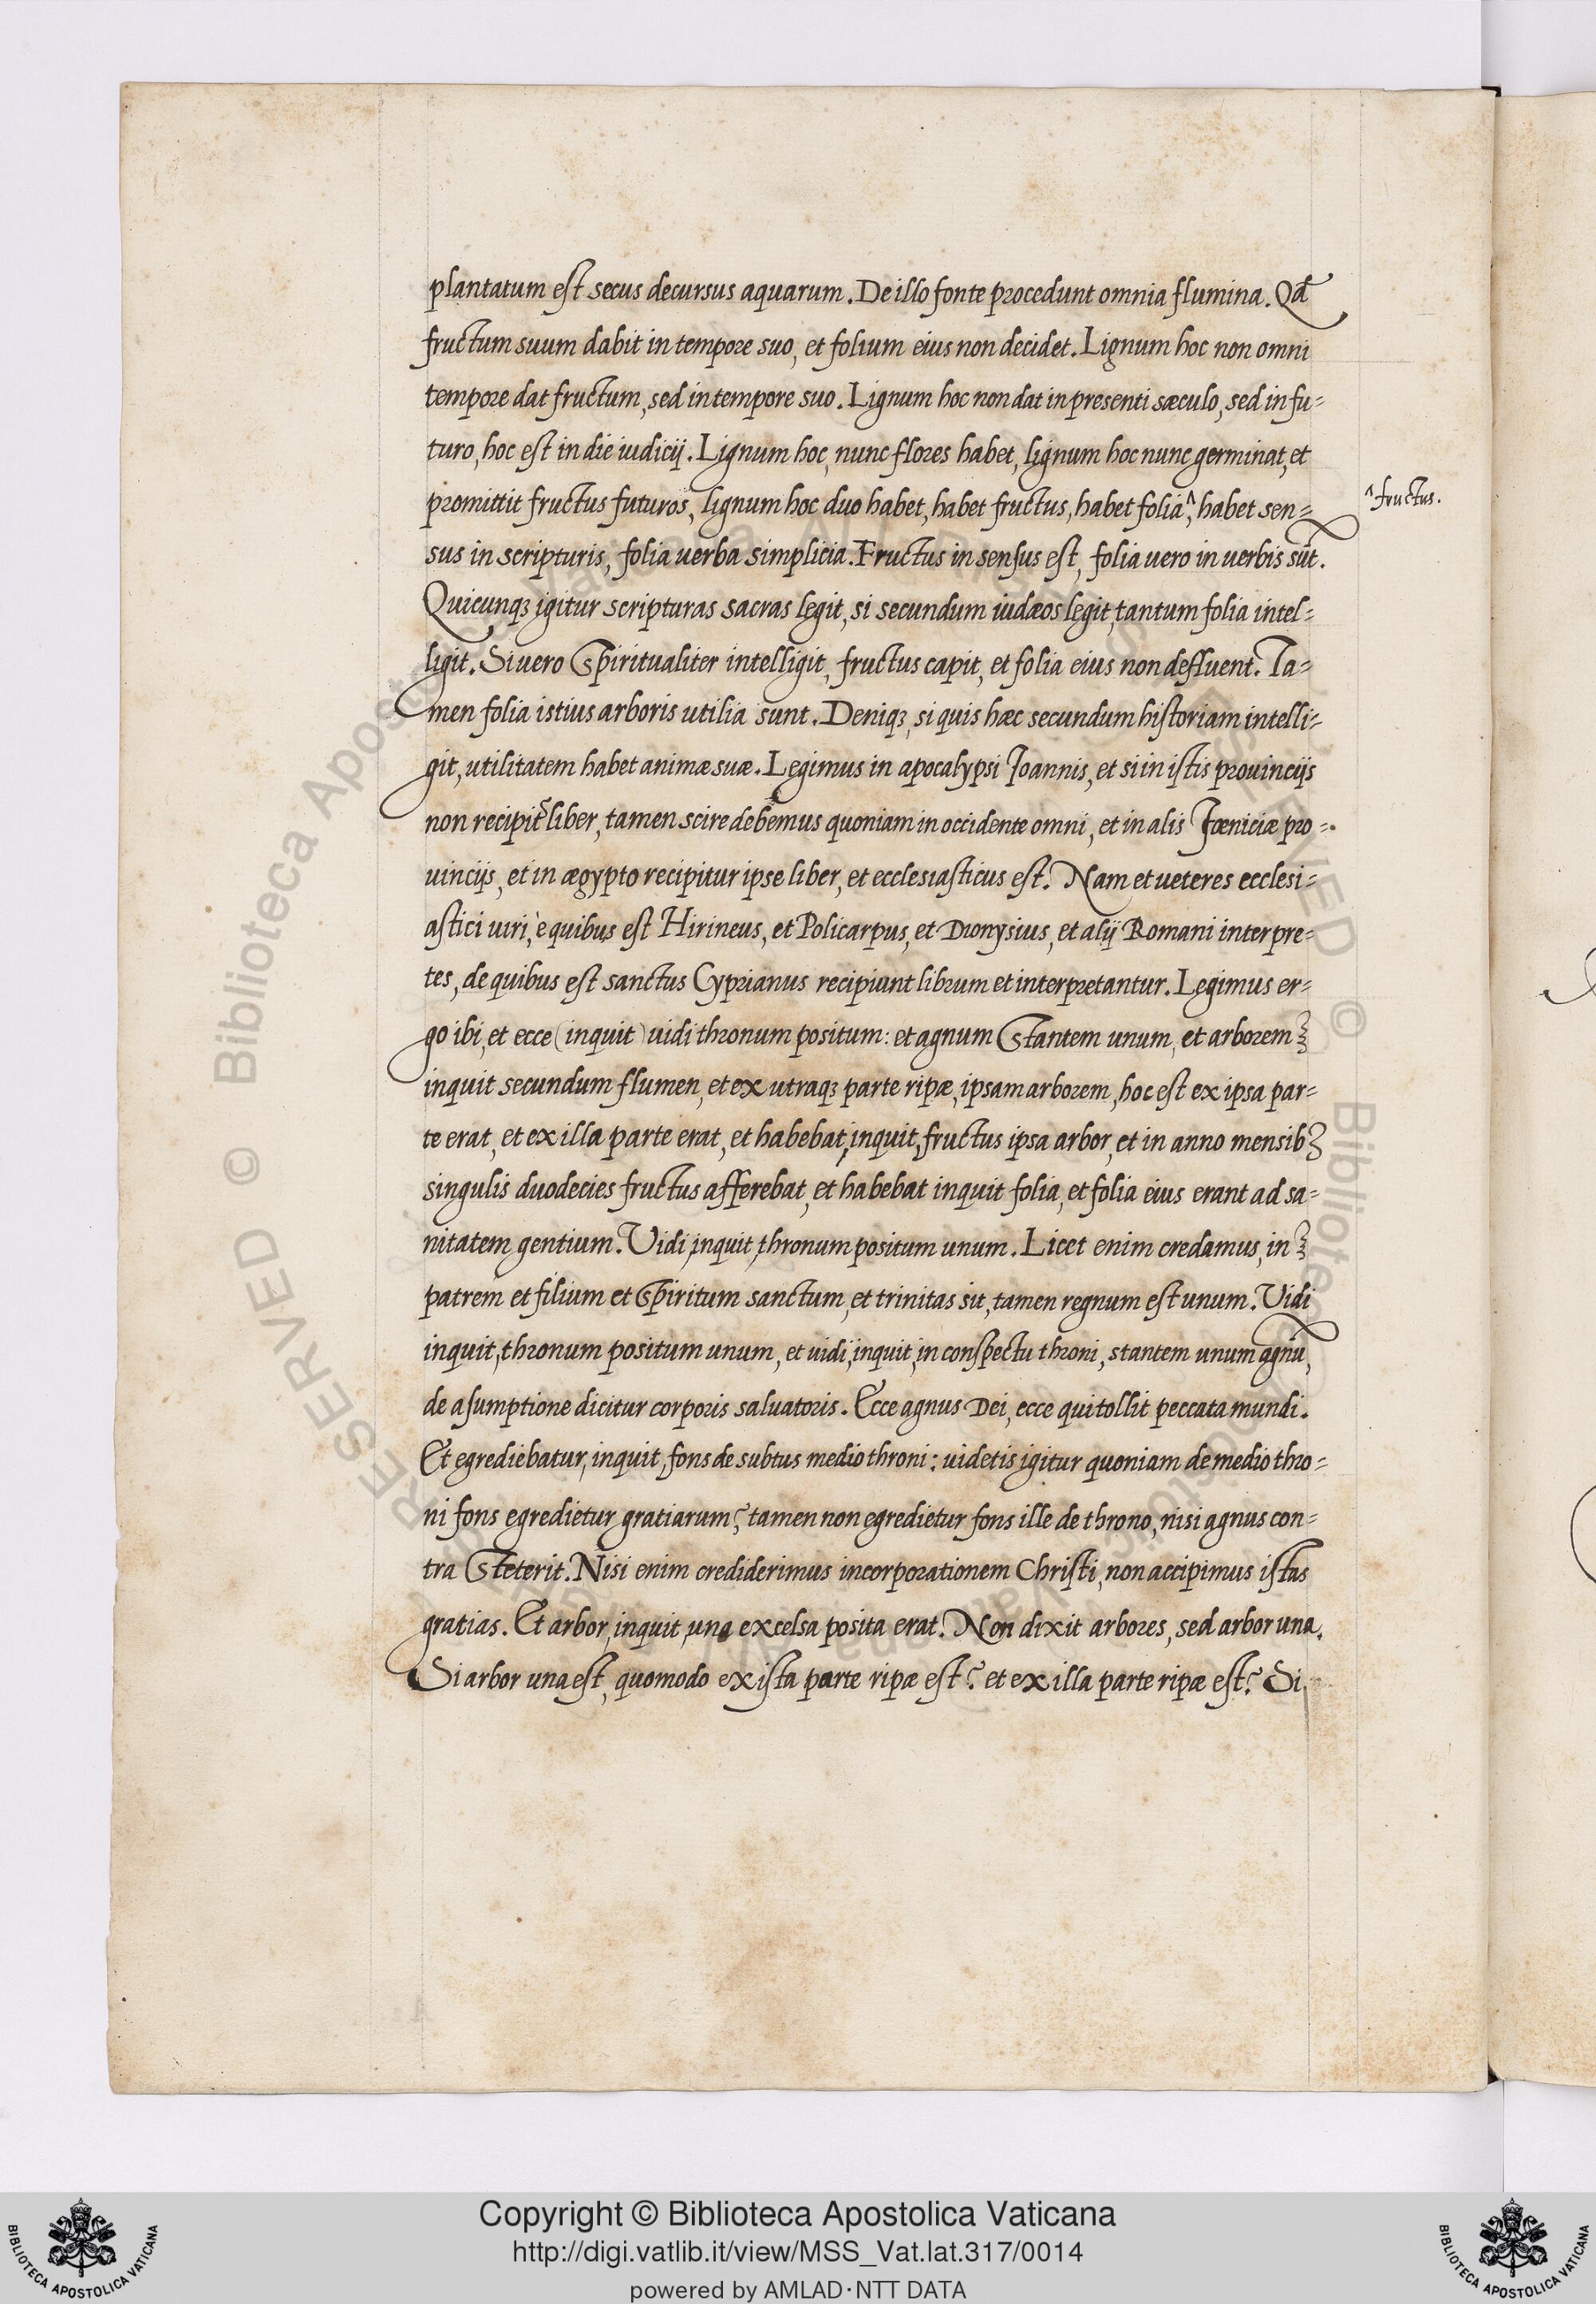 plantatum est secus decursus aquarum. De illo fonte procedunt omnia flumina. Qd̄
fructum suum dabit in tempore suo, et folium eius non decidet. Lignum hoc non omni
tempore dat fructum, sed in tempore suo. Lignum hoc non dat in presenti sæculo, sed in fu=
turo, hoc est in die iudicij. Lignum hoc, nunc flores habet, lignum hoc nunc germinat, et
promittit fructus futuros, lignum hoc duo habet, habet fructus, habet folia^, habet sen=
^ fructus.
sus in scripturis, folia uerba simplicia. Fructus in sensus est, folia uero in uerbis sūt.
Quicunqꝫ igitur scripturas sacras legit, si secundum iudæos legit, tantum folia intel=
ligit. Si uero Spiritualiter intelligit, fructus capit, et folia eius non defluent. Ta=
men folia istius arboris utilia sunt. Deniqꝫ, si quis hæc secundum historiam intelli=
git, utilitatem habet animæ suæ. Legimus in apocalypsi Ioannis, et si in istis prouincijs
non recipit᷑ liber, tamen scire debemus quoniam in occidente omni, et in alis Fœniciæ pro=
uincijs, et in ægypto recipitur ipse liber, et ecclesiasticus est. Nam et ueteres ecclesi=
astici uiri, è quibus est Hirineus, et Policarpus, et Dionysius, et alij Romani interpre=
tes, de quibus est sanctus Cyprianus recipiunt librum et interpretantur. Legimus er=
go ibi, et ecce (inquit) uidi thronum positum: et agnum Stantem unum, et arborem
inquit secundum flumen, et ex utraqꝫ parte ripæ, ipsam arborem, hoc est ex ipsa par=
te erat, et ex illa parte erat, et habebat, inquit, fructus ipsa arbor, et in anno mensibꝫ
singulis duodecies fructus afferebat, et habebat inquit folia, et folia eius erant ad sa=
nitatem gentium. Vidi, inquit, thronum positum unum. Licet enim credamus, in
patrem et filium et Spiritum sanctum, et trinitas sit, tamen regnum est unum. Vidi
inquit, thronum positum unum, et uidi, inquit, in conspectu throni, stantem unum agnū,
de asumptione dicitur corporis saluatoris. Ecce agnus Dei, ecce qui tollit peccata mundi.
Et egrediebatur, inquit, fons de subtus medio throni: uidetis igitur quoniam de medio thro=
ni fons egredietur gratiarum? tamen non egredietur fons ille de throno, nisi agnus con=
tra Steterit. Nisi enim crediderimus incorporationem Christi, non accipimus istas
gratias. Et arbor, inquit, una excelsa posita erat. Non dixit arbores, sed arbor una.
Si arbor una est, quomodo ex ista parte ripæ est? et ex illa parte ripæ est? Si
© Biblioteca Apostolica Vaticana
RESERVED
Copyright © Biblioteca Apostolica Vaticana
http://digi.vatlib.it/view/MSS_Vat.lat.317/0014
powered by AMLAD·NTT DATA
BIBLIOTECA APOSTOLICA VATICANA
BIBLIOTECA APOSTOLICA VATICANA